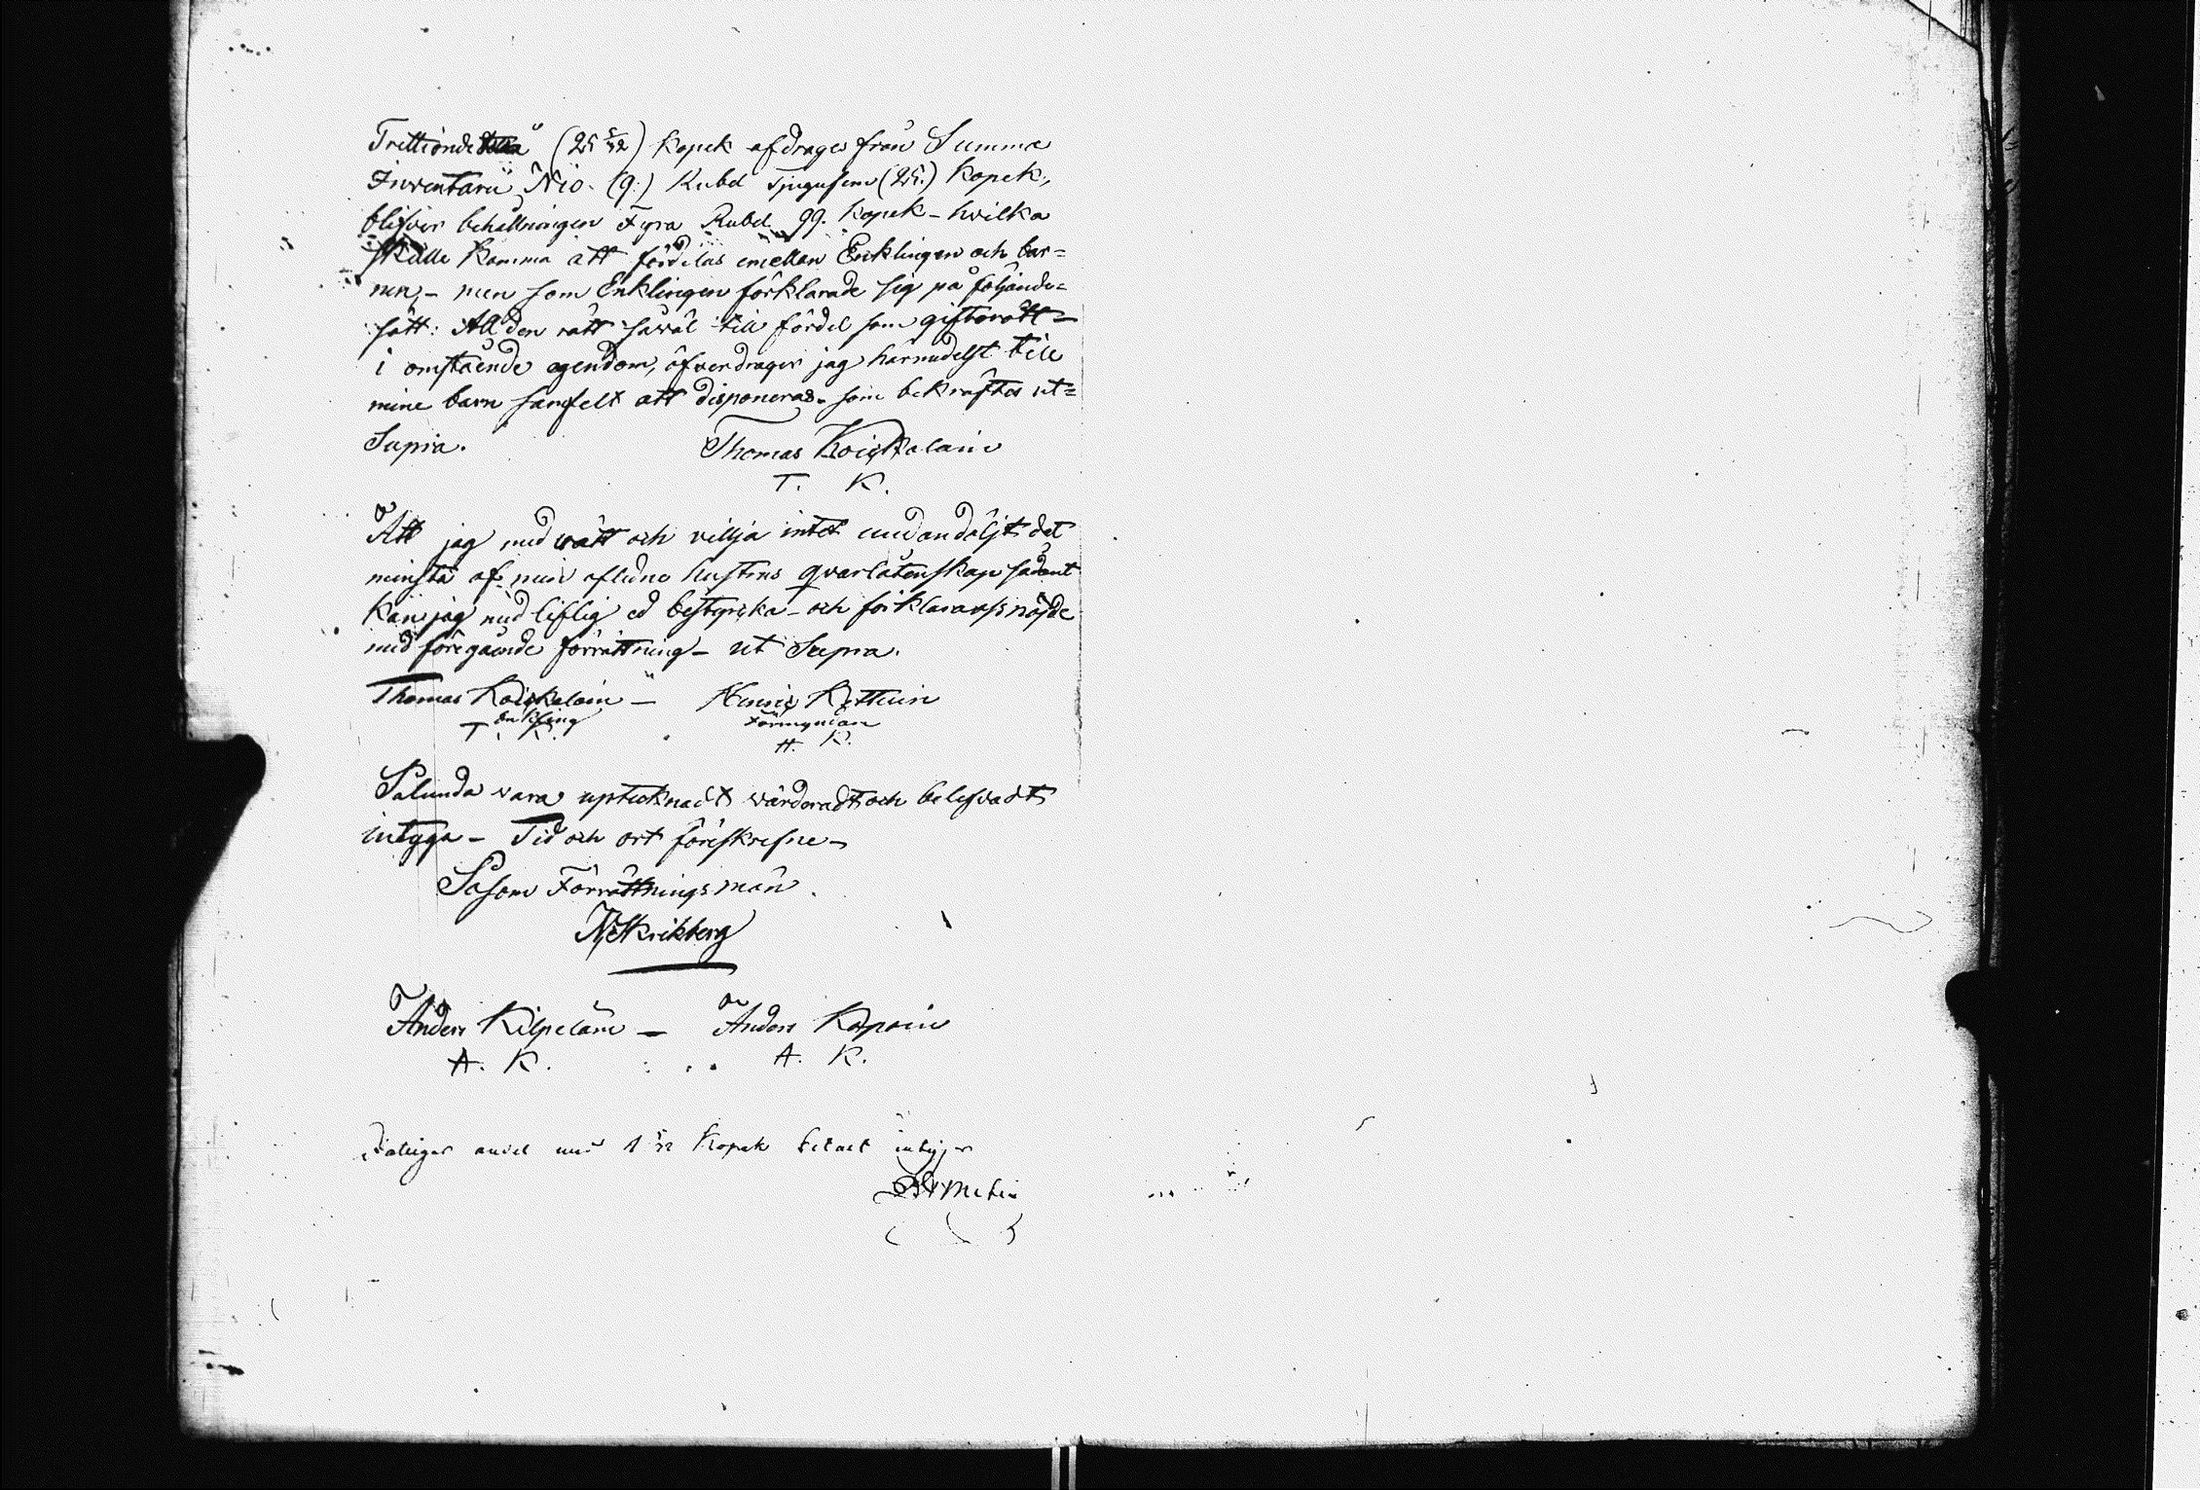 Trettionde (25 5/32) kopek afdrages från Summa
Inventarii Nio. (9:) Rubel Tjugufem (25.) Kopek,
blifver behållningen Fyra Rubel 99. kopek – hvilka
skulle komma att fördelas emellan Enklingen och bar=
nen, – men som Enklingen förklarade sig på följande=
sätt: All den rätt såväl till fördel som giftorätt –
i omstående egendom, öfverdrager jag härmedelst till
mine barn samfelt att disponeras. som bekräftes ut=
Supra. Thomas Koiskalain
T. K.
Att jag med vett och vilja intet undandöljt det
minsta af min aflidne hustrus qvarlåtenskap sådant
kan jag med liflig ed bestyrcka – och förklara oss nöjde
med föregående förrättning – ut Supra.
Thomas Koiskalain – Hennis Kettuin
Enkling Förmyndare
T. K. H. K.
Sålunda vara uptecknadt värderadt och belefvadt,
intyga – Tid och ort föreskrefne –
Såsom Förrättningsmän.
Anders Kilpeläin – Anders
A. K. A. K.
Fattiges andel med 1 5/32 Kopek betalt intygar